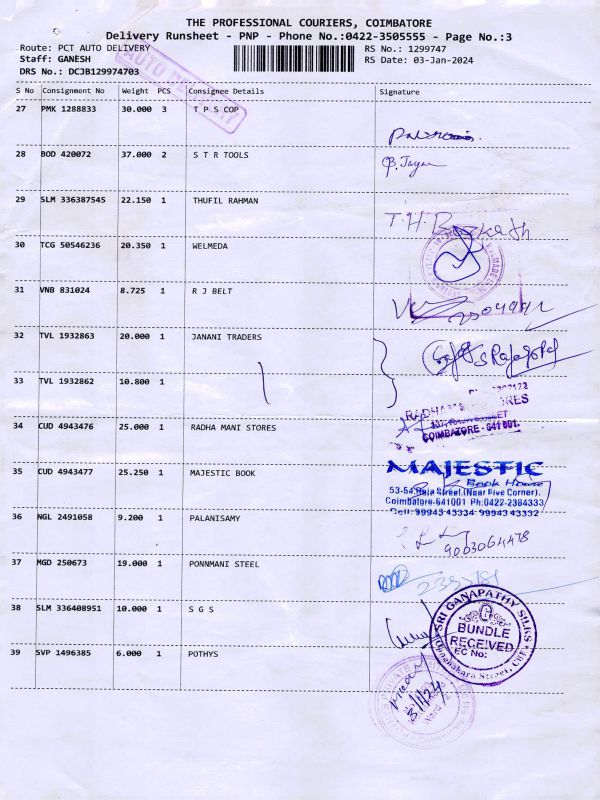 THE PROFESSIONAL COURIERS, COIMBATORE
Delivery Runsheet - PNP - Phone No.:0422-3505555 - Page No.:3
Route: PCT AUTO DELIVERY
RS No.: 1299747
Staff: GANESH
RS Date: 03-Jan-2024
DRS No.: DCJB129974703
AUTO DELIVERY
S No Consignment No Weight PCS Consignee Details Signature
27 PMK 1288833 30.000 3 T P S COP
28 BOD 420072 37.000 2 S T R TOOLS
29 SLM 336387545 22.150 1 THUFIL RAHMAN
T.H.
30 TCG 50546236 20.350 1 WELMEDA
31 VNB 831024 8.725 1 R J BELT
32 TVL 1932863 20.000 1 JANANI TRADERS
33 TVL 1932862 10.800 1
34 CUD 4943476 25.000 1 RADHA MANI STORES
COIMBATORE - 641 001.
35 CUD 4943477 25.250 1 MAJESTIC BOOK
MAJESTIC
Book House
53-54, Raja Street, (Near Five Corner),
Coimbatore-641001 Ph:0422-2384333
Cell: 99943 43334 99943 43332
36 NGL 2491058 9.200 1 PALANISAMY
9003064478
37 MGD 250673 19.000 1 PONNMANI STEEL
38 SLM 336408951 10.000 1 S G S
SRI GANAPATHY SILKS
BUNDLE
RECEIVED
EC No:
Oppanakara Street, CBE
39 SVP 1496385 6.000 1 POTHYS
3/1/24